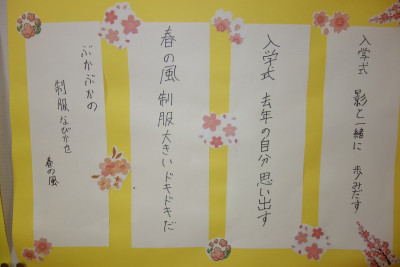 入学式 影と一緒に 歩みだす
入学式 去年の自分 思い出す
春の風 制服大きい ドキドキだ
ぶかぶかの
制服なびかせ
春の風